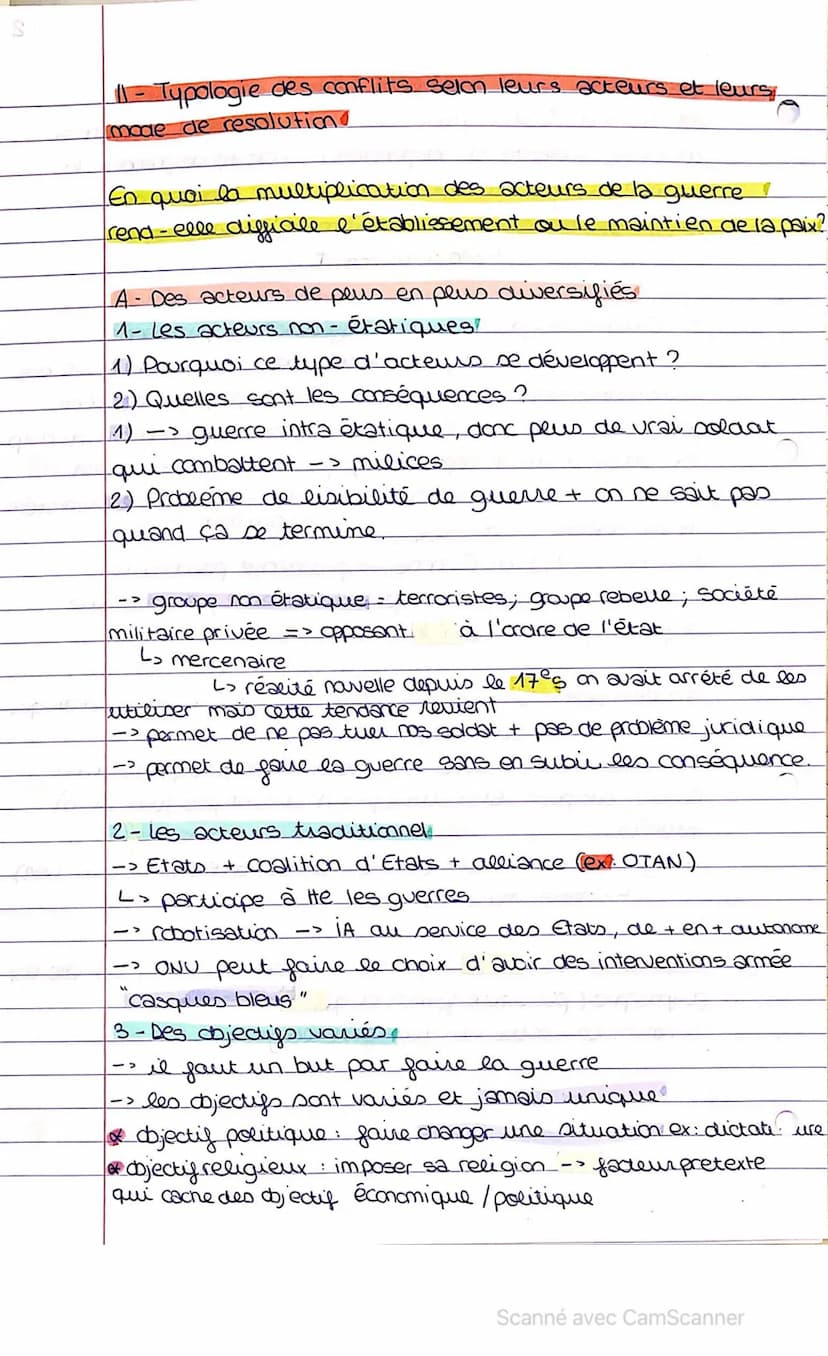 II - Typologie des conflits selon leurs acteurs et leurs
mode de resolution
En quoi la multiplication des acteurs de la guerre
rend-elle difficile l'établissement ou le maintien de la paix?
A - Des acteurs de plus en plus diversifiés
1- Les acteurs non-étatiques
1) Pourquoi ce type d'acteurs se développent ?
2) Quelles sont les conséquences ?
1) -> guerre intra étatique, donc plus de vrai soldat
qui combattent -> milices
2) Probléme de lisibilité de guerre + on ne sait pas
quand ça se termine.
-> groupe non étatique = terroristes; groupe rebelle ; société
militaire privée => opposant à l'ordre de l'État
↳ mercenaire
↳ réalité nouvelle depuis le 17e s on avait arrété de les
utiliser mais cette tendance revient
-> permet de ne pas tuer nos soldat + pas de problème juridique
-> permet de faire la guerre sans en subir les conséquence.
2 - Les acteurs traditionnel
-> Etats + coalition d'Etats + alliance (ex: OTAN)
↳ participe à tte les guerres
-> robotisation -> IA au service des Etats, de + en + autonome
-> ONU peut faire le choix d'avoir des interventions armée
"casques bleus"
3 - Des objectifs variés
-> il faut un but par faire la guerre
-> les objectifs sont variés et jamais unique
* objectif politique : faire changer une situation ex: dictature
* objectif religieux : imposer sa religion -> facteur pretexte
qui cache des objectif économique / politique
Scanné avec CamScanner